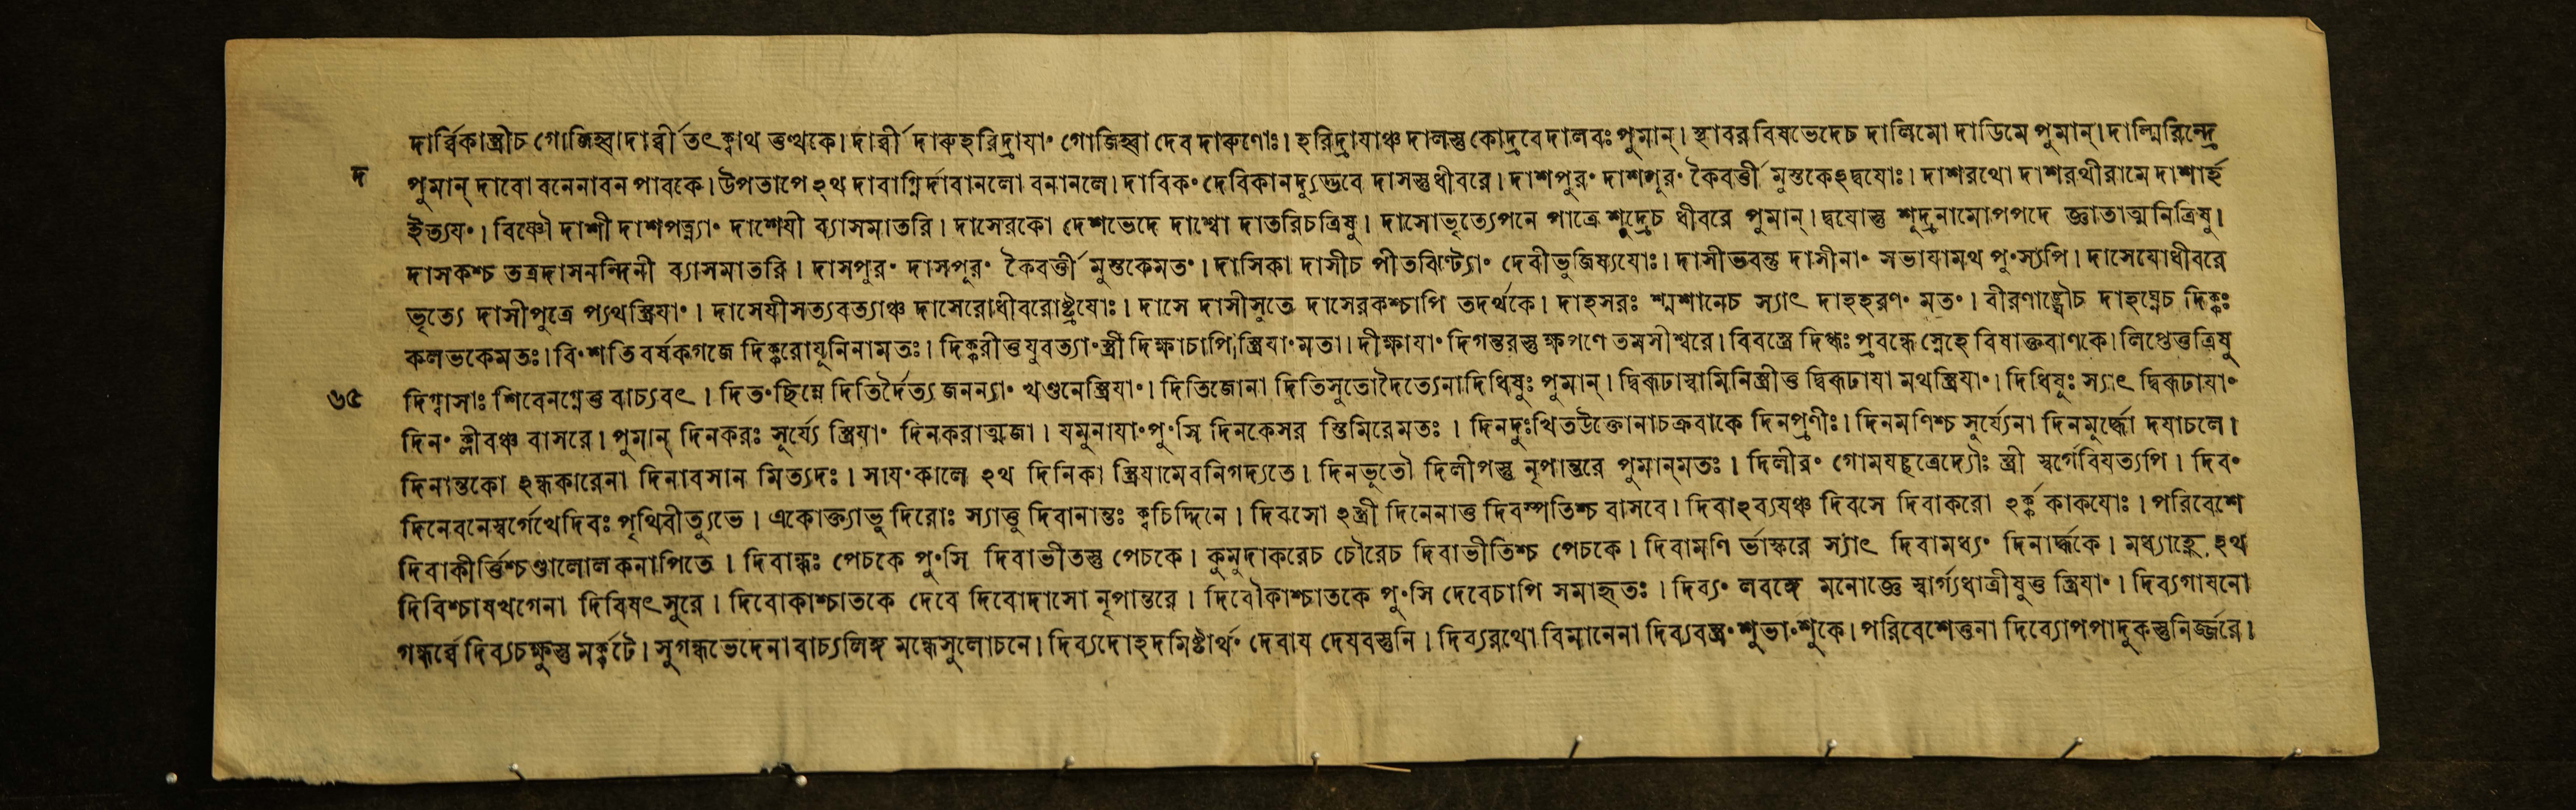 দার্ব্বিকাস্ত্রীচ গোজিহ্বাদার্ব্বী তৎক্বাথ তুত্থকে। দার্ব্বী দারুহরিদ্রাযাং গোজিহ্বা দেব দারুণোঃ। হরিদ্রাযাঞ্চ দালস্তু কোদ্রবে দালবঃ পুমান্। স্থাবর বিষভেদেচ দালিমো দাডিমে পুমান্। দাল্মিরিন্দ্রে
দ
পুমান্ দাবো বনেনাবন পাবকে। উপতাপে ঽথ দাবাগ্নির্দাবানলো বনানলে। দাবিকং দেবিকানদ্যুদ্ভবে দাসস্তুধীবরে। দাশপুরং দাশপূরং কৈবর্ত্তী মুস্তকেঽদ্বযোঃ। দাশরথো দাশরথীরামে দাশার্হ
ইত্যযং। বিষ্ণৌ দাশী দাশপত্ন্যাং দাশেযী ব্যাসমাতরি। দাসেরকো দেশভেদে দাশ্বো দাতরিচত্রিষু। দাসোভৃত্যেপনে পাত্রে শূদ্রেচ ধীবরে পুমান্। দ্বযোস্তু শূদ্রনামোপপদে জ্ঞাতাত্মনিত্রিষু।
দাসকশ্চ তত্রদাসনন্দিনী ব্যাসমাতরি। দাসপুরং দাসপূরং কৈবর্ত্তী মুস্তকেমতং। দাসিকা দাসীচ পীতঝিণ্ট্যাং দেবীভুজিষ্যযোঃ। দাসীভবন্তু দাসীনাং সভাযামথ পুংস্যপি। দাসেযোধীবরে
ভৃত্যে দাসীপুত্রে প্যথস্ত্রিযাং। দাসেযীসত্যবত্যাঞ্চ দাসেরোধীবরোষ্ট্রযোঃ। দাসে দাসীসুতে দাসেরকশ্চাপি তদর্থকে। দাহসরঃ শ্মশানেচ স্যাৎ দাহহরণং মতং। বীরণাঙ্ঘ্রৌচ দাহঘ্নেচ দিক্কঃ
কলভকেমতঃ। বিংশতি বর্ষকগজে দিক্করোযূনিনামতঃ। দিক্করীত্তযুবত্যাংস্ত্রী দিক্ষাচাপিস্ত্রিযাংমতা। দীক্ষাযাং দিগন্তরস্তু ক্ষপণে তমসীশ্বরে। বিবস্ত্রে দিগ্ধঃ প্রবন্ধে স্নেহে বিষাক্তবাণকে। লিপ্তেত্তত্রিষু
৬৫ দিগ্বাসাঃ শিবেনগ্নেত্ত বাচ্যবৎ। দিতংছিন্নে দিতির্দৈত্য জনন্যাং খণ্ডনেস্ত্রিযাং। দিতিজোনা দিতিসুতোদৈত্যেনাদিধিষুঃ পুমান্। দ্বিরূঢাস্বামিনিস্ত্রীত্ত দ্বিরূঢাযা মথস্ত্রিযাং। দিধিষূঃ স্যাৎ দ্বিরূঢাযাং
দিনং ক্লীবঞ্চ বাসরে। পুমান্ দিনকরঃ সূর্য্যে স্ত্রিযাং দিনকরাত্মজা। যমুনাযাংপুংসি দিনকেসর স্তিমিরেমতঃ। দিনদুঃখিতউক্তোনাচক্রবাকে দিনপ্রণীঃ। দিনমণিশ্চ সূর্য্যেনা দিনমুর্দ্ধো দযাচলে।
দিনান্তকো ঽন্ধকারেনা দিনাবসান মিত্যদঃ। সাযংকালে ঽথ দিনিকা স্ত্রিযামেবনিগদ্যতে। দিনভৃতৌ দিলীপস্তু নৃপান্তরে পুমান্‌মতঃ। দিলীরং গোমযছত্রেদ্যৌঃ স্ত্রী স্বর্গেবিযত্যপি। দিবং
দিনেবনেস্বর্গেখেদিবঃ পৃথিবীত্যুভে। একোক্ত্যাভু দিরোঃ স্যাত্তু দিবানান্তঃ ক্বচিদ্দিনে। দিবসো ঽস্ত্রী দিনেনাত্ত দিবস্পতিশ্চ বাসবে। দিবাঽব্যযঞ্চ দিবসে দিবাকরো ঽর্ক্ক কাকযোঃ। পরিবেশে
দিবাকীর্ত্তিশ্চণ্ডালোলকনাপিতে। দিবান্ধঃ পেচকে পুংসি দিবাভীতস্তু পেচকে। কুমুদাকরেচ চৌরেচ দিবাভীতিশ্চ পেচকে। দিবামণি র্ভাস্করে স্যাৎ দিবামধ্যং দিনার্দ্ধকে। মধ্যাহ্নে ঽথ
দিবিশ্চাষখগেনা দিবিষৎসুরে। দিবোকাশ্চাতকে দেবে দিবোদাসো নৃপান্তরে। দিবৌকাশ্চাতকে পুংসি দেবেচাপি সমাহৃতঃ। দিব্যং লবঙ্গে মনোজ্ঞে স্বার্গ্যধাত্রীষুত্ত স্ত্রিযাং। দিব্যগাযনো
গন্ধর্ব্বে দিব্যচক্ষুস্তু মর্ক্কটে। সুগন্ধভেদেনাবাচ্যলিঙ্গ মন্ধেসুলোচনে। দিব্যদোহদমিষ্টার্থং দেবায দেযবস্তুনি। দিব্যরথো বিমানেনা দিব্যবস্ত্রংশুভাংশুকে। পরিবেশেত্তনা দিব্যোপপাদুকস্তুনির্জ্জরে।